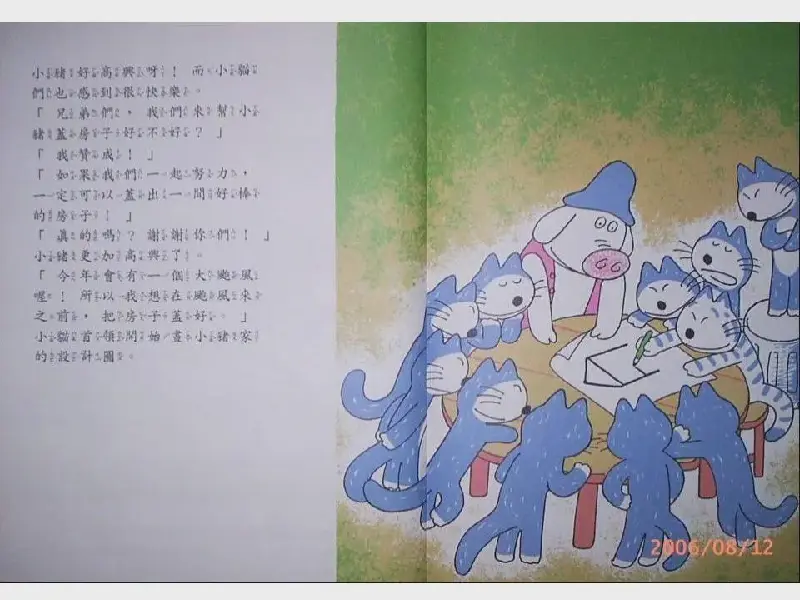 小豬好高興呀！ 而小貓
們也感到很快樂。
「 兄弟們， 我們來幫小
豬蓋房子好不好？ 」
「 我贊成！ 」
「 如果我們一起努力，
一定可以蓋出一間好棒
的房子！ 」
「 真的嗎？ 謝謝你們！ 」
小豬更加高興了。
「 今年會有一個大颱風
喔！ 所以我想在颱風來
之前， 把房子蓋好。 」
小貓首領開始畫小豬家
的設計圖。
2006/08/12